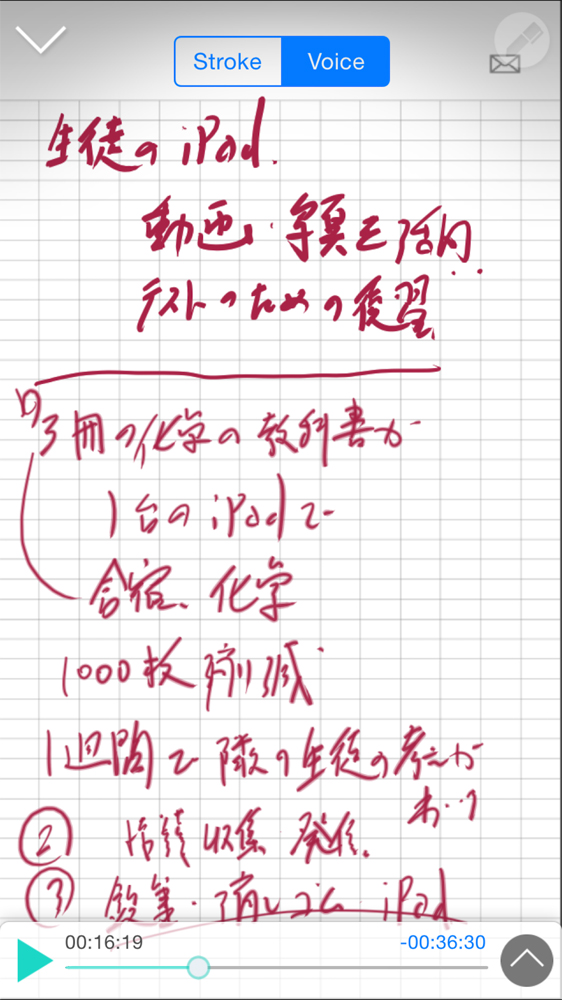 Stroke Voice
生徒の iPad.
動画・写真を活用
テストのための復習
3冊の化学の教科書が
1台の iPad で
合宿、化学
1000枚 削減
1週間で 隣の生徒の考えが
わかる
② 情報 収集 発信
③ 鉛筆・消しゴム iPad
00:16:19 -00:36:30